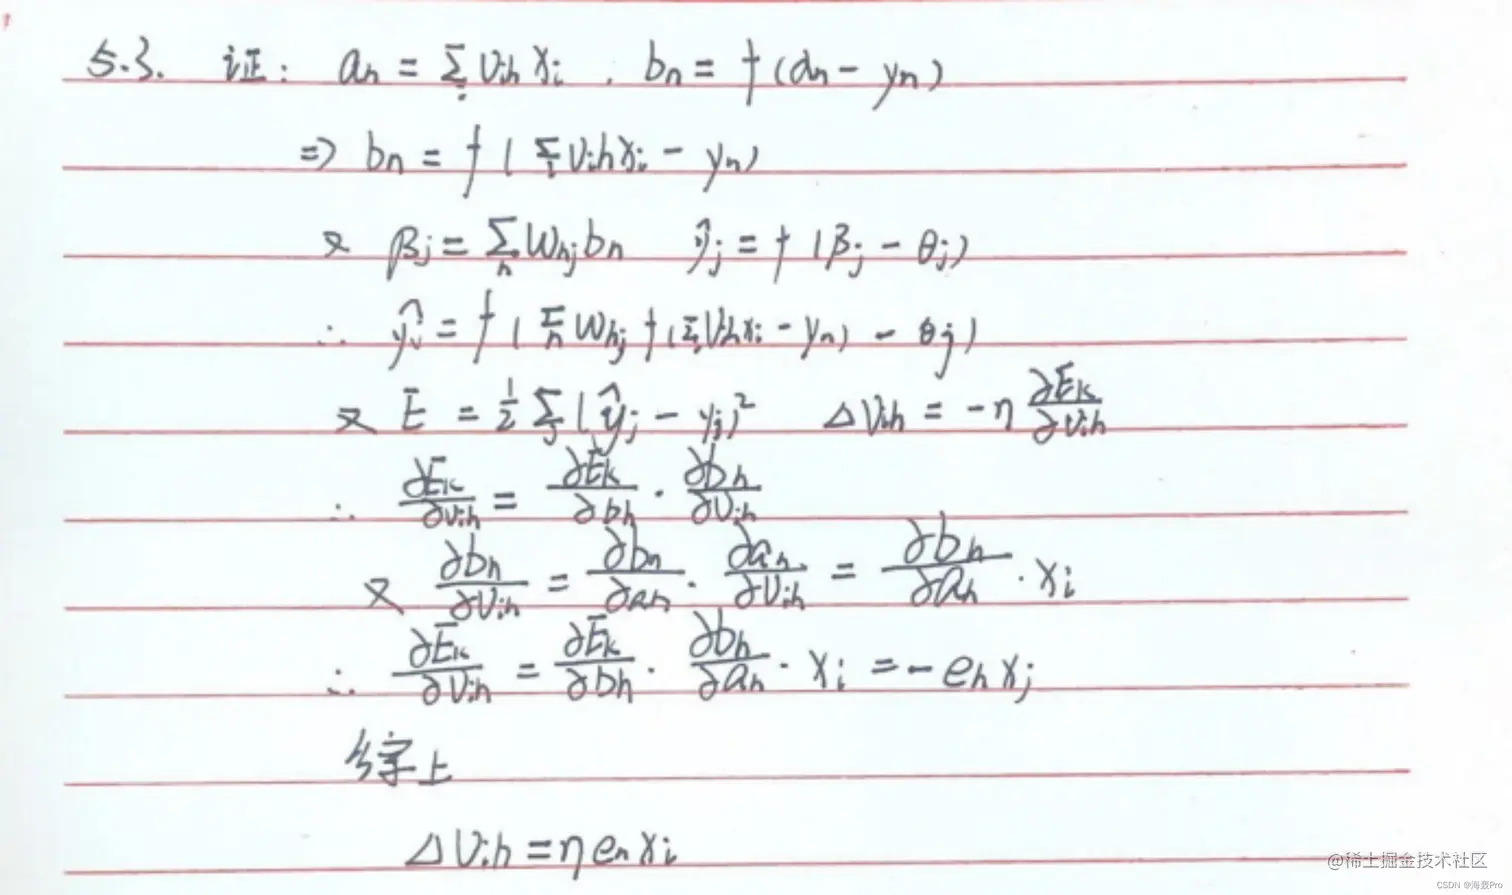 5.3. 证: an = Σi Vih xi . bn = f(αn - γn)
⇒ bn = f(Σi Vih xi - γn)
又 βj = Σh Whj bn ŷj = f(βj - θj)
∴ ŷj = f(Σh Whj f(Σi Vih xi - γn) - θj)
又 E = 1/2 Σj (ŷj - yj)² ΔVih = -η ∂Ek/∂Vih
∴ ∂Ek/∂Vih = ∂Ek/∂bh · ∂bn/∂Vih
又 ∂bn/∂Vih = ∂bn/∂an · ∂an/∂Vih = ∂bn/∂an · xi
∴ ∂Ek/∂Vih = ∂Ek/∂bh · ∂bh/∂an · xi = -eh xj
综上
ΔVih = η en xi
@稀土掘金技术社区
CSDN @海轰Pro